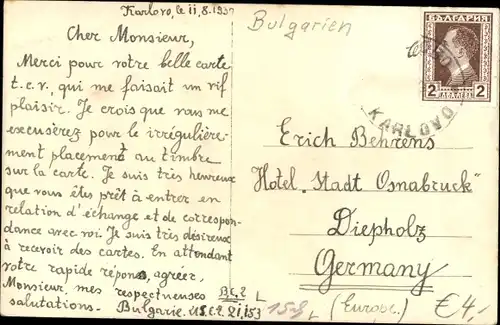 Karlovo, le 11.8.193
Cher Monsieur,
Merci pour votre belle carte
t.c.v., qui me faisait un vif
plaisir. Je crois que vous me
excuserez pour le irrégulière-
ment placement au timbre
sur la carte. Je suis très heureux
que vous êtes prêt à entrer en
relation d'échange et de correspon-
dance avec moi. Je suis très désireux
à recevoir des cartes. En attendant
votre rapide réponse, agréer,
Monsieur, mes respectueuses
salutations.
Bulgarie.
Bulgarien
БЪЛГАРИЯ
2 2
KARLOVO
Erich Behrens
Hotel „Stadt Osnabruck"
Diepholz
Germany
(Europe.)
€4,-